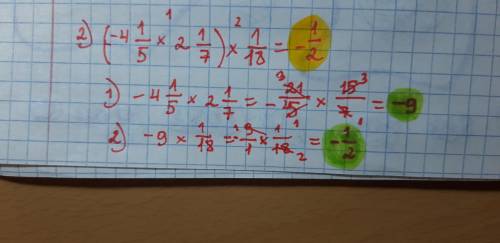 2) (-4 1/5 × 2 1/7) × 1/18 = -1/2
1) -4 1/5 × 2 1/7 = -21/5 × 15/7 = -9
2) -9 × 1/18 = -9/1 × 1/18 = -1/2